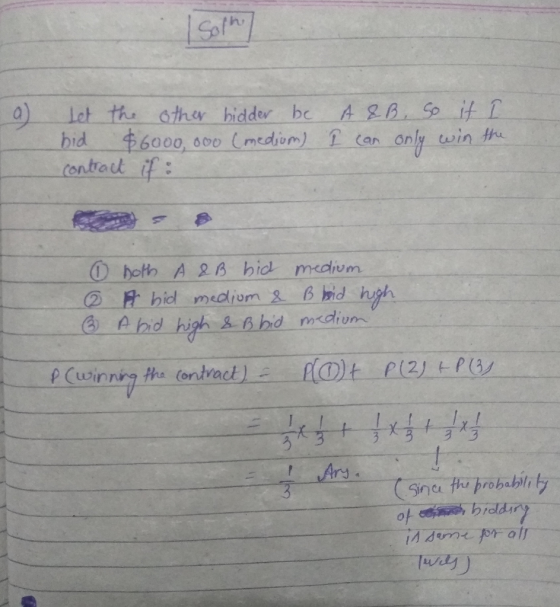 Solⁿ
a) Let the other bidder be A & B. So if I
bid $6000,000 (medium) I can only win the
contract if :
=
① both A & B bid medium
② A bid medium & B bid high
③ A bid high & B bid medium
P(winning the contract) = P(①) + P(2) + P(3)
= 1/3 × 1/3 + 1/3 × 1/3 + 1/3 × 1/3
= 1/3 Ans.
(since the probability
of bidding
is same for all
levels)